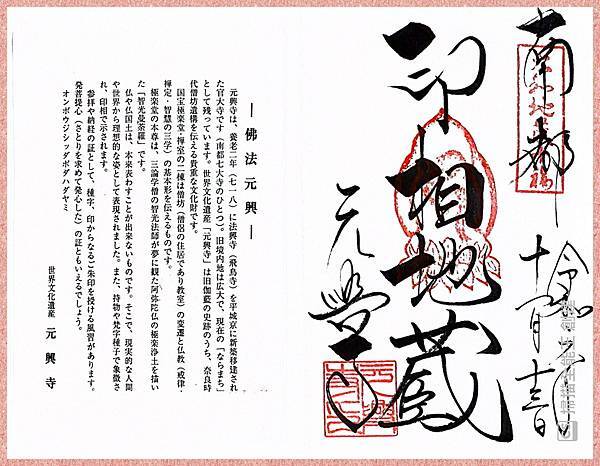 南都
令和六年
十一月十三日
印相地蔵
元興寺
― 佛法元興 ―
元興寺は、養老二年(七一八)に法興寺(飛鳥寺)を平城京に新築移建され
た官大寺です(南都七大寺のひとつ)。旧境内地は広大で、現在の「ならまち」
として残っています。世界文化遺産「元興寺」は旧伽藍の史跡のうち、奈良時
代僧坊遺構を伝える貴重な文化財です。
国宝極楽堂・禅室の二棟は僧坊(僧侶の住居であり教室)の変遷と仏教(戒律・
禅定・智慧の三学)の基本形を伝えるものです。
極楽堂の本尊は、三論学僧の智光法師が夢に観た阿弥陀仏の極楽浄土を描い
た「智光曼荼羅」です。
仏や仏国土は、本来表わすことが出来ないものです。そこで、現実的な人間
や世界から理想的な姿として表現されました。また、持物や梵字種子で象徴さ
れ、印相で示されます。
参拝や納経の証として、種字、印からなるご朱印を授ける風習があります。
発菩提心(さとりを求めて発心した)の証ともいえるでしょう。
オンボウジシッダボダハダヤミ
世界文化遺産 元興寺